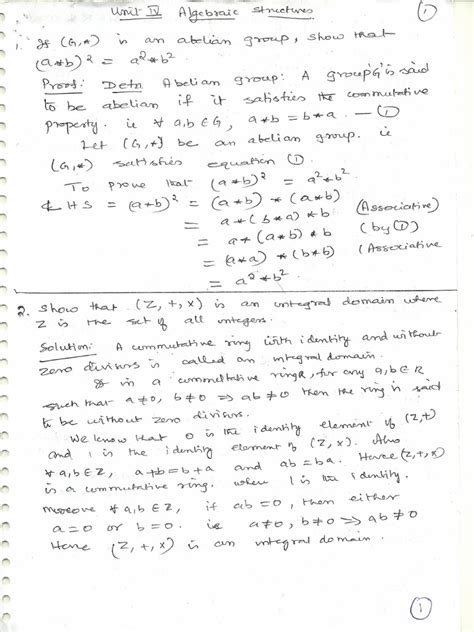 Unit IV Algebraic Structures
1
1. If (G,*) is an abelian group, show that
(a*b)² = a²*b²
Proof: Detn Abelian group: A group 'G' is said
to be abelian if it satisfies the commutative
property. ie ∀ a,b∈G, a*b = b*a. — ①
Let (G,*) be an abelian group. ie
(G,*) satisfies equation ①.
To prove that (a*b)² = a²*b²
LHS = (a*b)² = (a*b) * (a*b)
= a*(b*a)*b (Associative)
= a*(a*b)*b (by ①)
= (a*a)*(b*b) (Associative
= a²*b².
2. Show that (Z,+,×) is an integral domain where
Z is the set of all integers.
Solution: A commutative ring with identity and without
zero divisors is called an integral domain.
in a commutative ring R, for any a,b∈R
such that a≠0, b≠0 ⇒ ab≠0 then the ring is said
to be without zero divisors.
We know that 0 is the identity element of (Z,+)
and 1 is the identity element of (Z,×). Also
∀ a,b∈Z, a+b=b+a and ab=ba. Hence (Z,+,×)
is a commutative ring. where 1 is the identity.
Moreove ∀ a,b∈Z, if ab=0, then either
a=0 or b=0. ie a≠0, b≠0 ⇒ ab≠0
Hence (Z,+,×) is an integral domain.
1